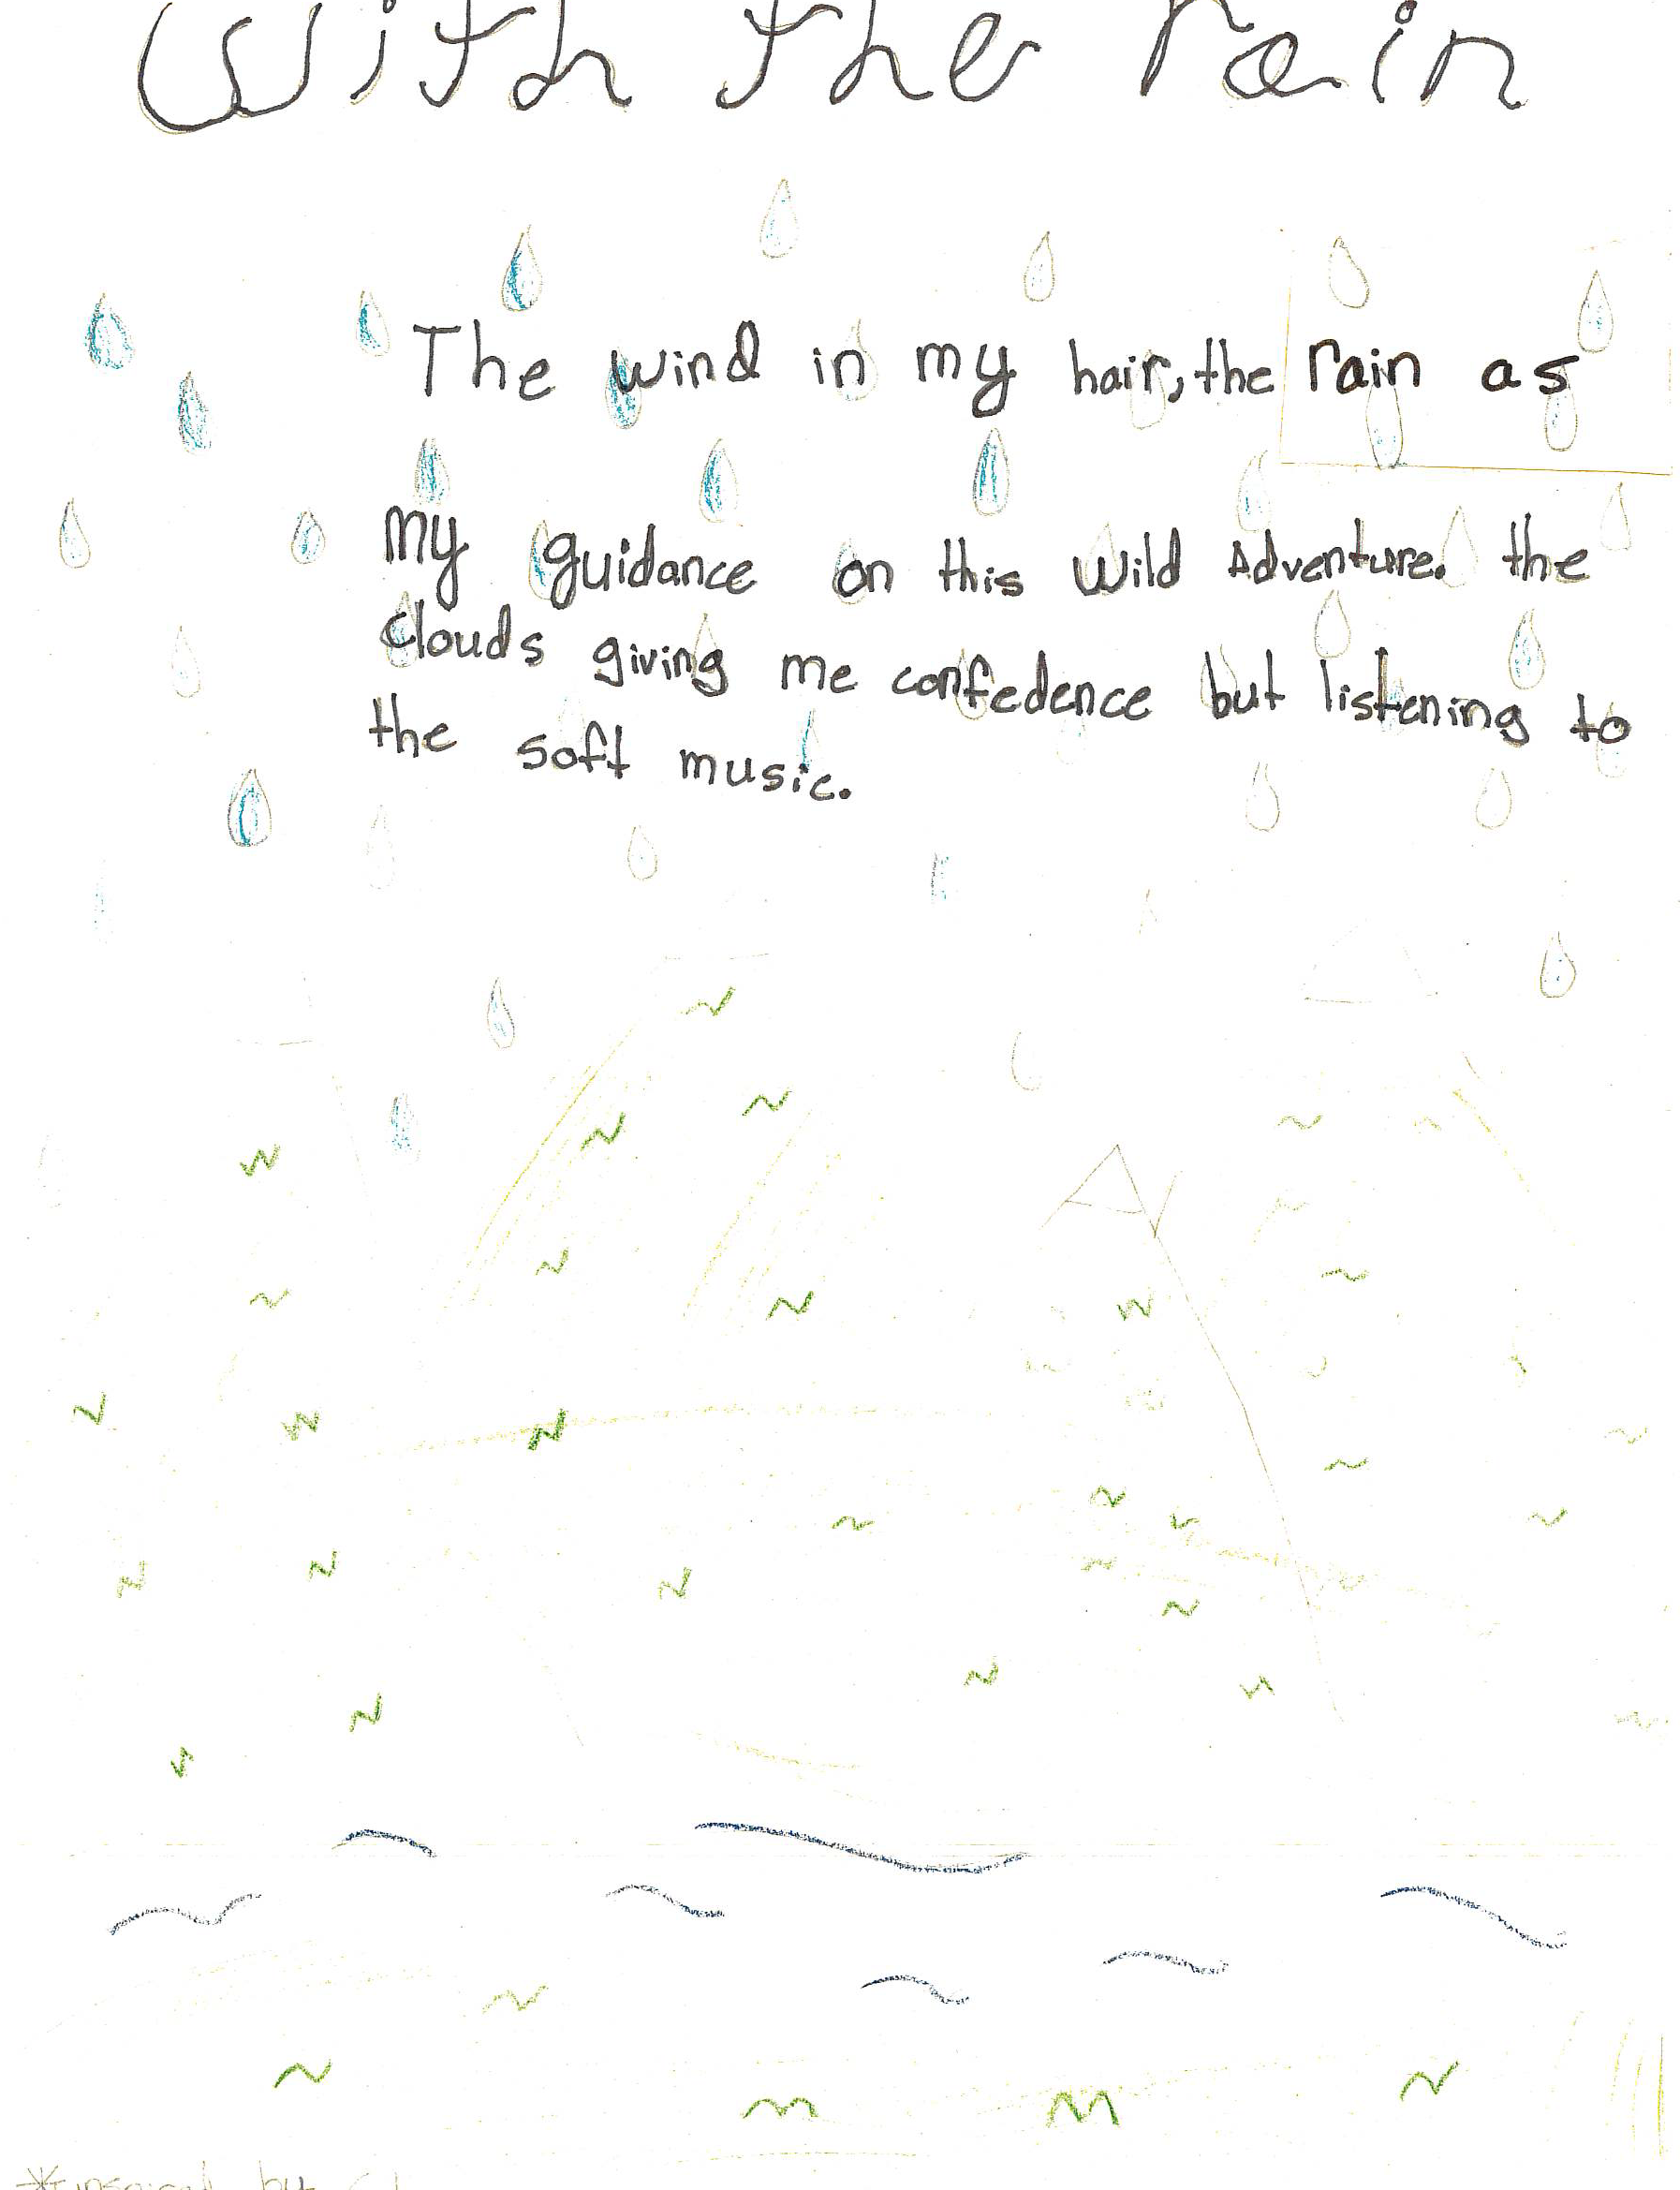 with the rain
The wind in my hair, the rain as
my guidance on this wild Adventure. the
clouds giving me confedence but listening to
the soft music.
*inspired by